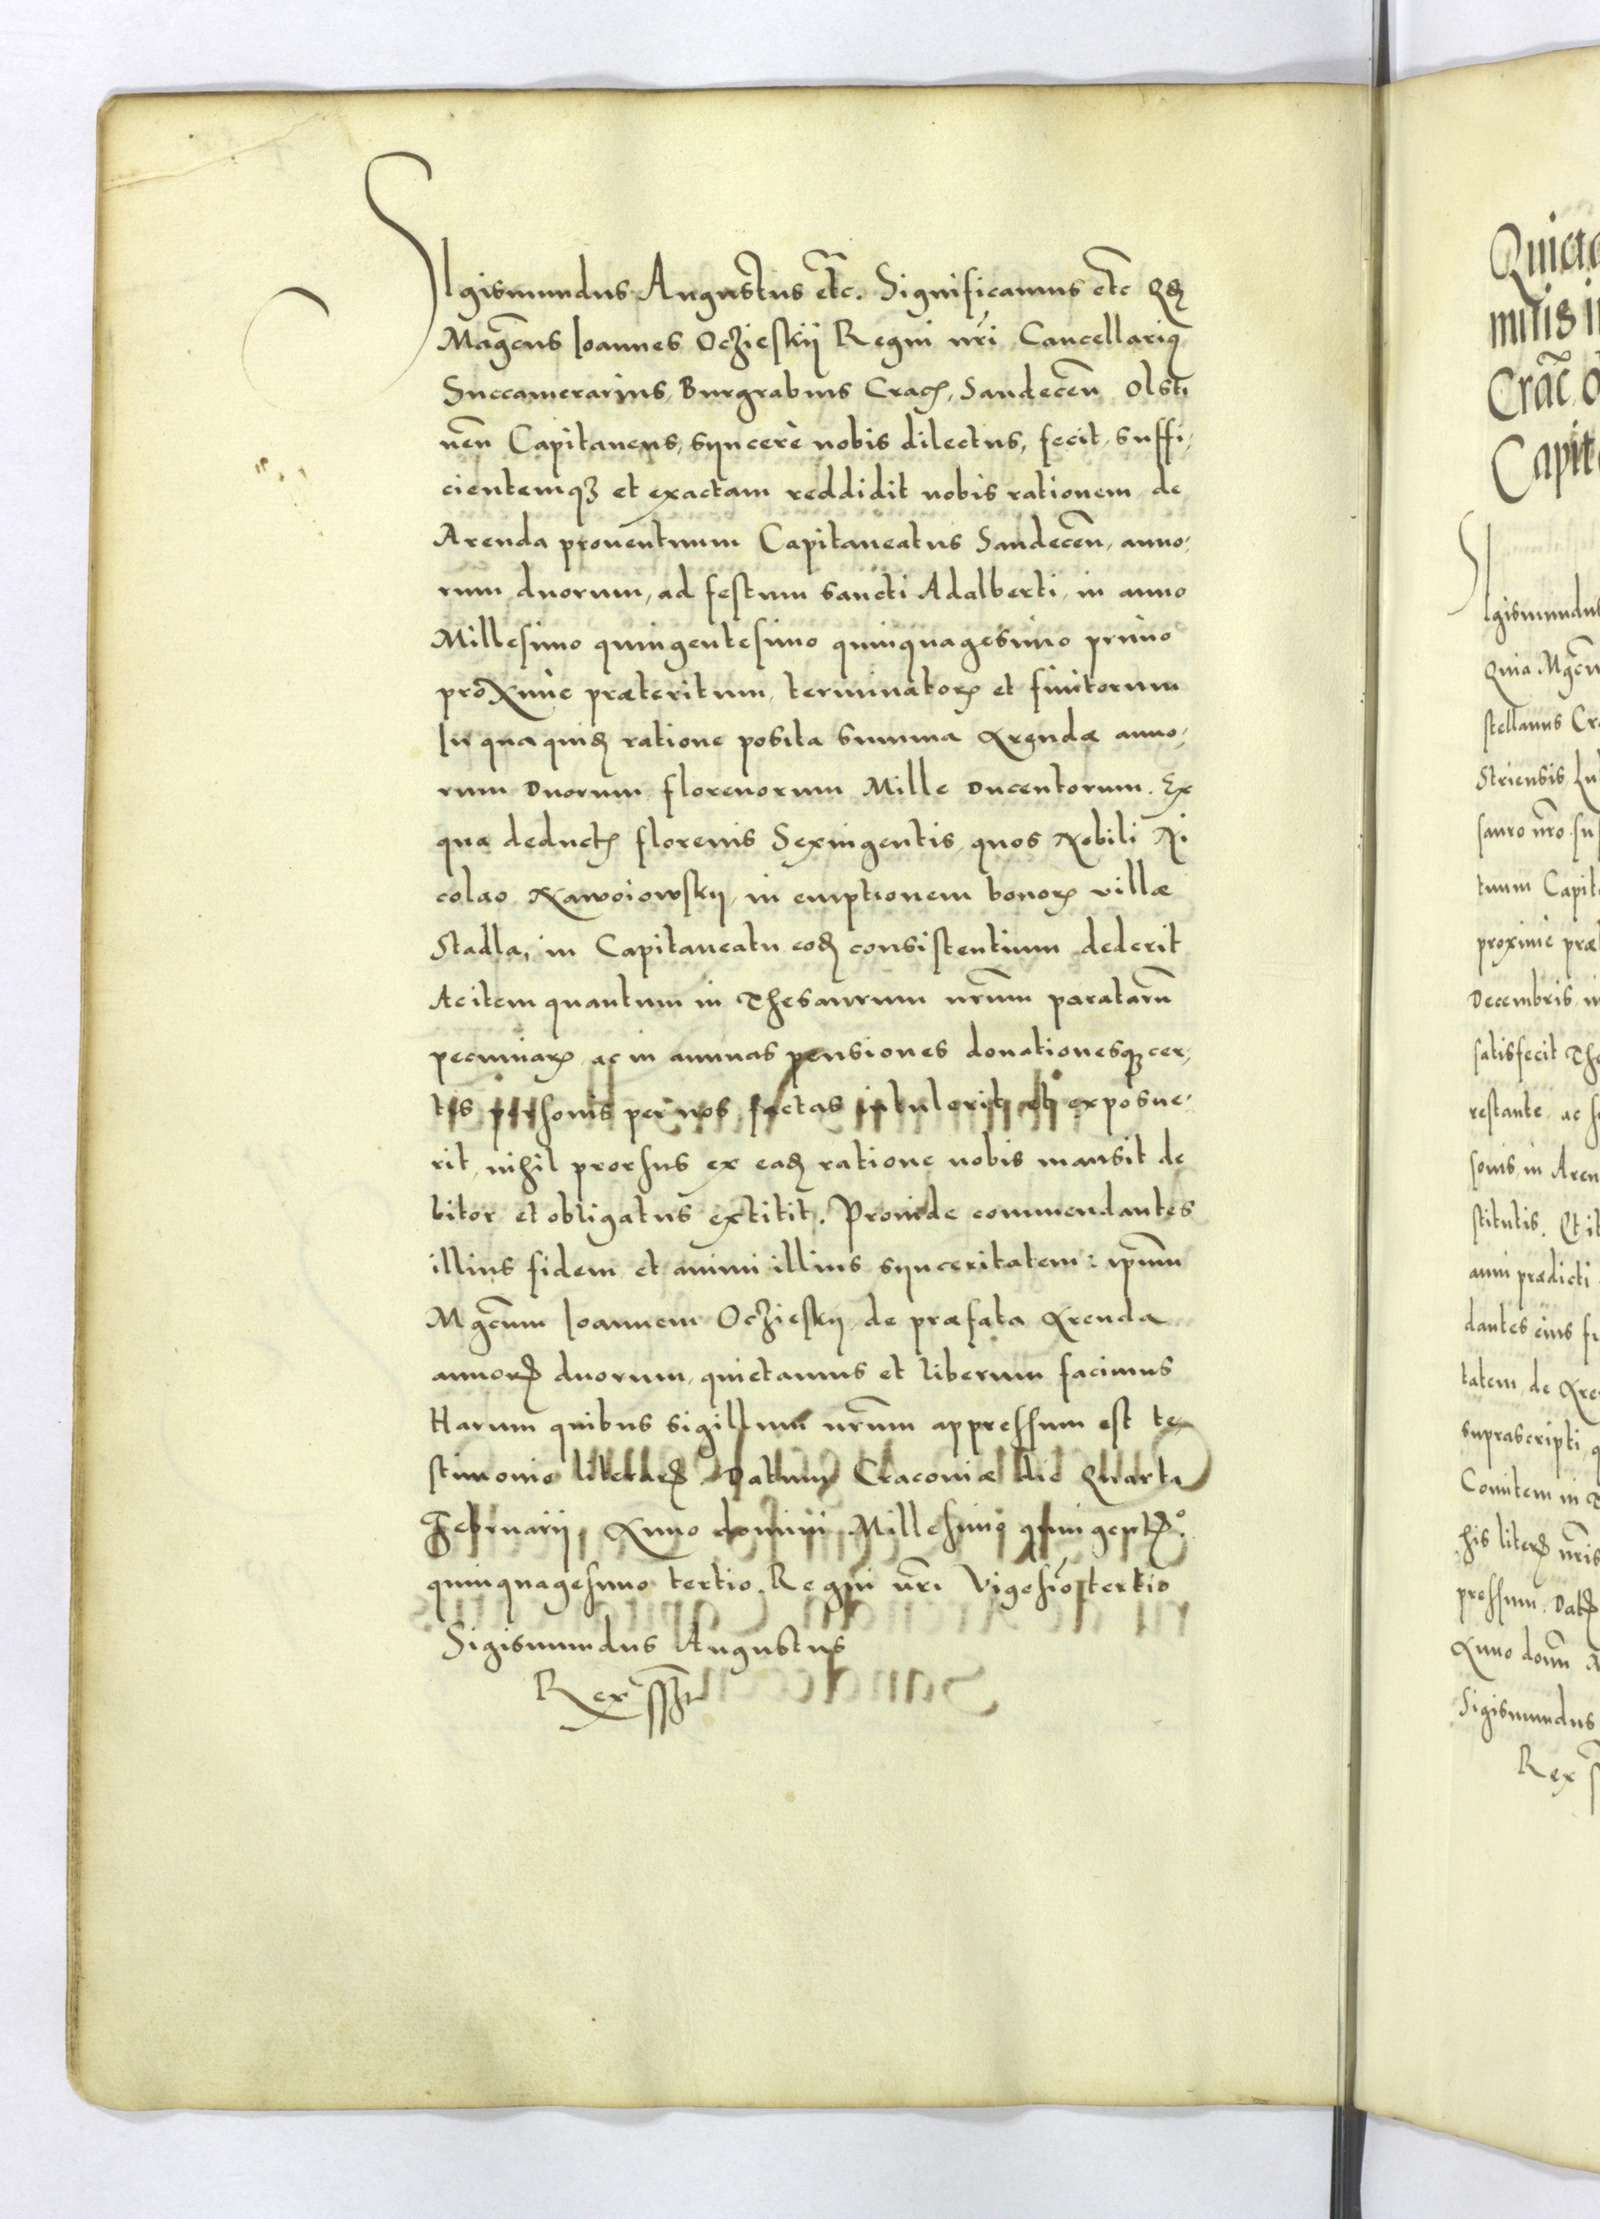 Sigismundus Augustus etc. Significamus etc Qđ
Magcus Ioannes Oczieskij Regni nri Cancellariq
Succamerarius, Burgrabius Cracȝ, Sandeceñ Olsti
neñ Capitaneus, synceré nobis dilectus, fecit, suffi,
cientemqȝ et exactam reddidit nobis rationem de
Arenda prouentuum Capitaneatus Sandeceñ, anno,
rum duorum, ad festum sancti Adalberti, in anno
Millesimo quingentesimo quinquagesimo primo
proxime præteritum, terminatorꝝ et finitorum
In qua quidȝ ratione posita summa Arendæ anno,
rum Duorum florenorum Mille Ducentorum. Ex
qua deductȝ florenis Sexingentis, quos Nobili Ni
colao Nawoiowskij, in emptionem bonorꝝ villæ
Stadla, in Capitaneatu eodȝ consistentium dederit
Ac item quantum in Thesaurum nrum paratarū
pecuniarꝝ ac in annuas pensiones donationesqȝ cer,
tis personis per nos factas intulerit et exposue,
rit, nihil prorsus ex eadȝ ratione nobis mansit de
bitor et obligatus extitit. Proinde commendantes
illius fidem et animi illius synceritatem: ipsum
Mgcum Ioannem Oczieskij, de præfata Arenda
annorꝝ duorum, quietamus et liberum facimus
Harum quibus sigillum nrum appressum est te
stimonio literarꝝ. Datum Cracoviæ die Quarta
Februarij, Anno domini Millesimo quingentȝº
quinquagesimo tertio. Regni nri Vigesimo tertio
Sigismundus Augustus
Rex sst
Mgcu
stellanus Cr
Striensis
sauro nro su
tuum Capit
proxime præ
Decembris, in
satisfecit
restante, ac
sonis in Aren
stitutis. Et it
anni prædicti
dantes eius fi
tatem, de Are
suprascripti
Comitem in
his literꝝ nris
pressum. Datȝ
Anno domi
Sigismundus
Rex